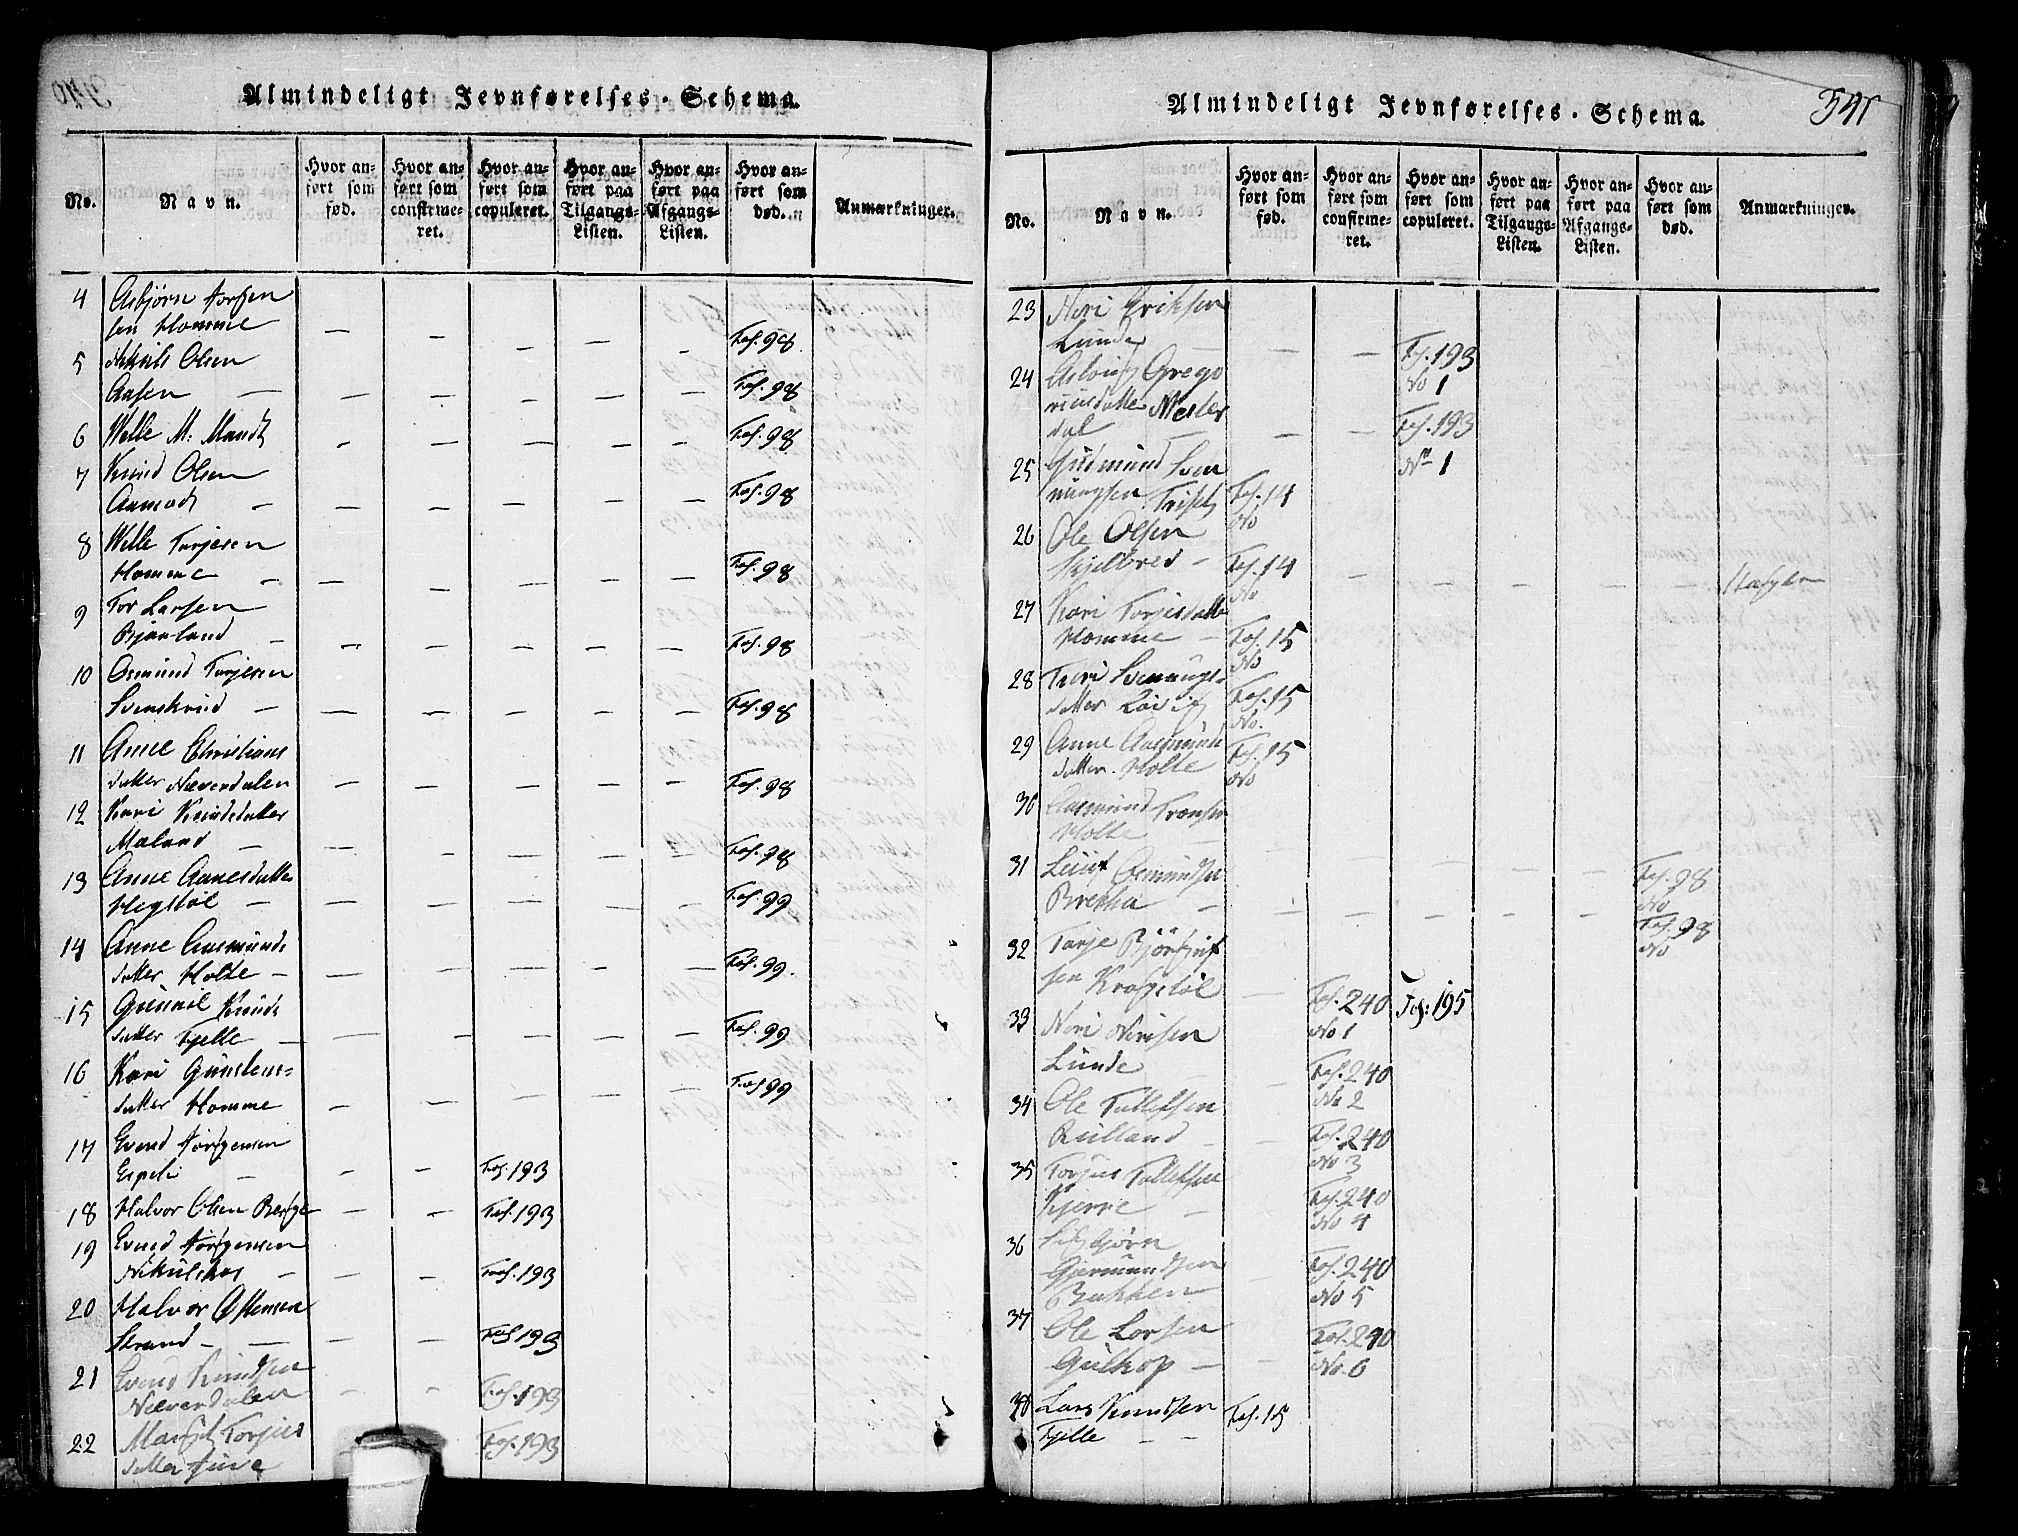 Almindeligt Jevnførelses-Schema.
No.
Navn.
Hvor anført som fød.
Hvor anført som confirmeret.
Hvor anført som copuleret.
Hvor anført paa Tilgangs-Listen.
Hvor anført paa Afgangs-Listen.
Hvor anført som død.
Anmærkninger.
4 Asbjörn
sen Homme — — — — — Fol. 98.
5 Olsen
Aasen — — — — — — Fol. 98
6 Welle M: Mandt — — — — — Fol. 98
7 Knud Olsen
Aamodt — — — — — — Fol. 98
8 Welle Tarjesen
Homme — — — — — — Fol. 98
9 Tor Larsen
Bjaaland — — — — — — Fol. 98
10 Osmund Torjesen
Svenskrud — — — — — — Fol. 98
11 Anne Christians
datter Næverdalen — — — — — Fol. 98
12 Kari Knudsdatter
Maland — — — — — — Fol. 98
13 Anne Aanesdatter
Hegstöl — — — — — — Fol. 99
14 Anne Aasmunds
datter Holte — — — — — — Fol. 99.
15 Gunnil Knuds
datter Fjelle — — — — — — Fol. 99
16 Kari Gunlens=
datter Homme — — — — — Fol 99
17 Evend Jörgensen
Espeli — — — Fol. 193
18 Halvor Olsen Berge — — Fol. 193
19 Evend Jörgensen
Nikulshus — — — Fol. 193
20 Halvor Ostensen
Strand — — — — Fol 193
21 Evend Knudsen
Næverdalen — — Fol. 193
22 Margit Torjus
datter — — Fol. 193
Almindeligt Jevnførelses-Schema.
541
No.
Navn.
Hvor anført som fød.
Hvor anført som confirmeret.
Hvor anført som copuleret.
Hvor anført paa Tilgangs-Listen.
Hvor anført paa Afgangs-Listen.
Hvor anført som død.
Anmærkninger.
23 Neri Eriksen
Lunde — — — Fol. 193
No 1
24 Asloug Grego
riusdatter Mester
dal — — — Fol. 193
No 1
25 Gudmund Sven
nungsen Triset Fol. 14
No
26 Ole Olsen
Skjelbred — Fol. 14
No
27 Kari Torjusdatter
Homme — Fol. 15
No
28 Turi Svenungs=
datter Lövig Fol. 15
No.
29 Anne Aasmunds
datter Holte Fol. 15
No
30 Aasmund Tronsen
Holte
31 Leiuf Osmundsen
Brekka — — — — Fol. 98
No
32 Tarje Björguf
sen Kragstöl Fol. 98
No
33 Neri Nerisen
Lunde — Fol. 240 Fol: 195
No 1
34 Ole Tallefsen
Rulland — — Fol. 240
No 2
35 Torjus Tallefsen
Kjerrie — Fol. 240
No 3
Fol. 240
No 4
36 Sigbjörn
Gjermundsen
Bakken — Fol. 240
No 5
37 Ole Larsen
Gulkop — — Fol. 240
No. 6
38 Lars Knudsen
Fjelle — — Fol. 15